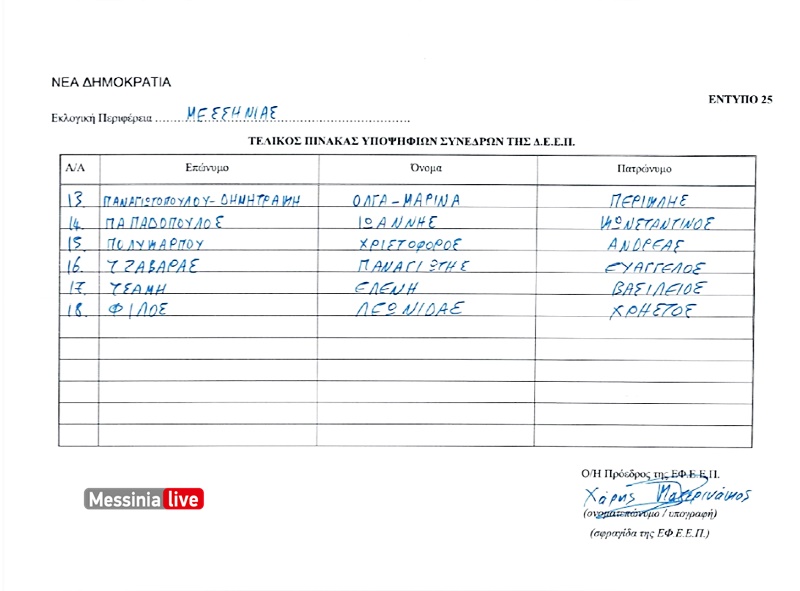 ΝΕΑ ΔΗΜΟΚΡΑΤΙΑ
ΕΝΤΥΠΟ 25
Εκλογική Περιφέρεια ..... ΜΕΣΣΗΝΙΑΣ .....
ΤΕΛΙΚΟΣ ΠΙΝΑΚΑΣ ΥΠΟΨΗΦΙΩΝ ΣΥΝΕΔΡΩΝ ΤΗΣ Δ.Ε.Ε.Π.
Α/Α Επώνυμο Όνομα Πατρώνυμο
13. ΠΑΝΑΓΙΩΤΟΠΟΥΛΟΥ-ΔΗΜΗΤΡΑΚΗ ΟΛΓΑ-ΜΑΡΙΝΑ ΠΕΡΙΚΛΗΣ
14. ΠΑΠΑΔΟΠΟΥΛΟΣ ΙΩΑΝΝΗΣ ΚΩΝΣΤΑΝΤΙΝΟΣ
15. ΠΟΛΥΚΑΡΠΟΥ ΧΡΙΣΤΟΦΟΡΟΣ ΑΝΔΡΕΑΣ
16. ΤΖΑΒΑΡΑΣ ΠΑΝΑΓΙΩΤΗΣ ΕΥΑΓΓΕΛΟΣ
17. ΤΣΑΜΗ ΕΛΕΝΗ ΒΑΣΙΛΕΙΟΣ
18. ΦΙΛΟΣ ΛΕΩΝΙΔΑΣ ΧΡΗΣΤΟΣ
Ο/Η Πρόεδρος της ΕΦ.Ε.Ε.Π.
Χάρης
(ονοματεπώνυμο / υπογραφή)
(σφραγίδα της ΕΦ.Ε.Ε.Π.)
Messinia live